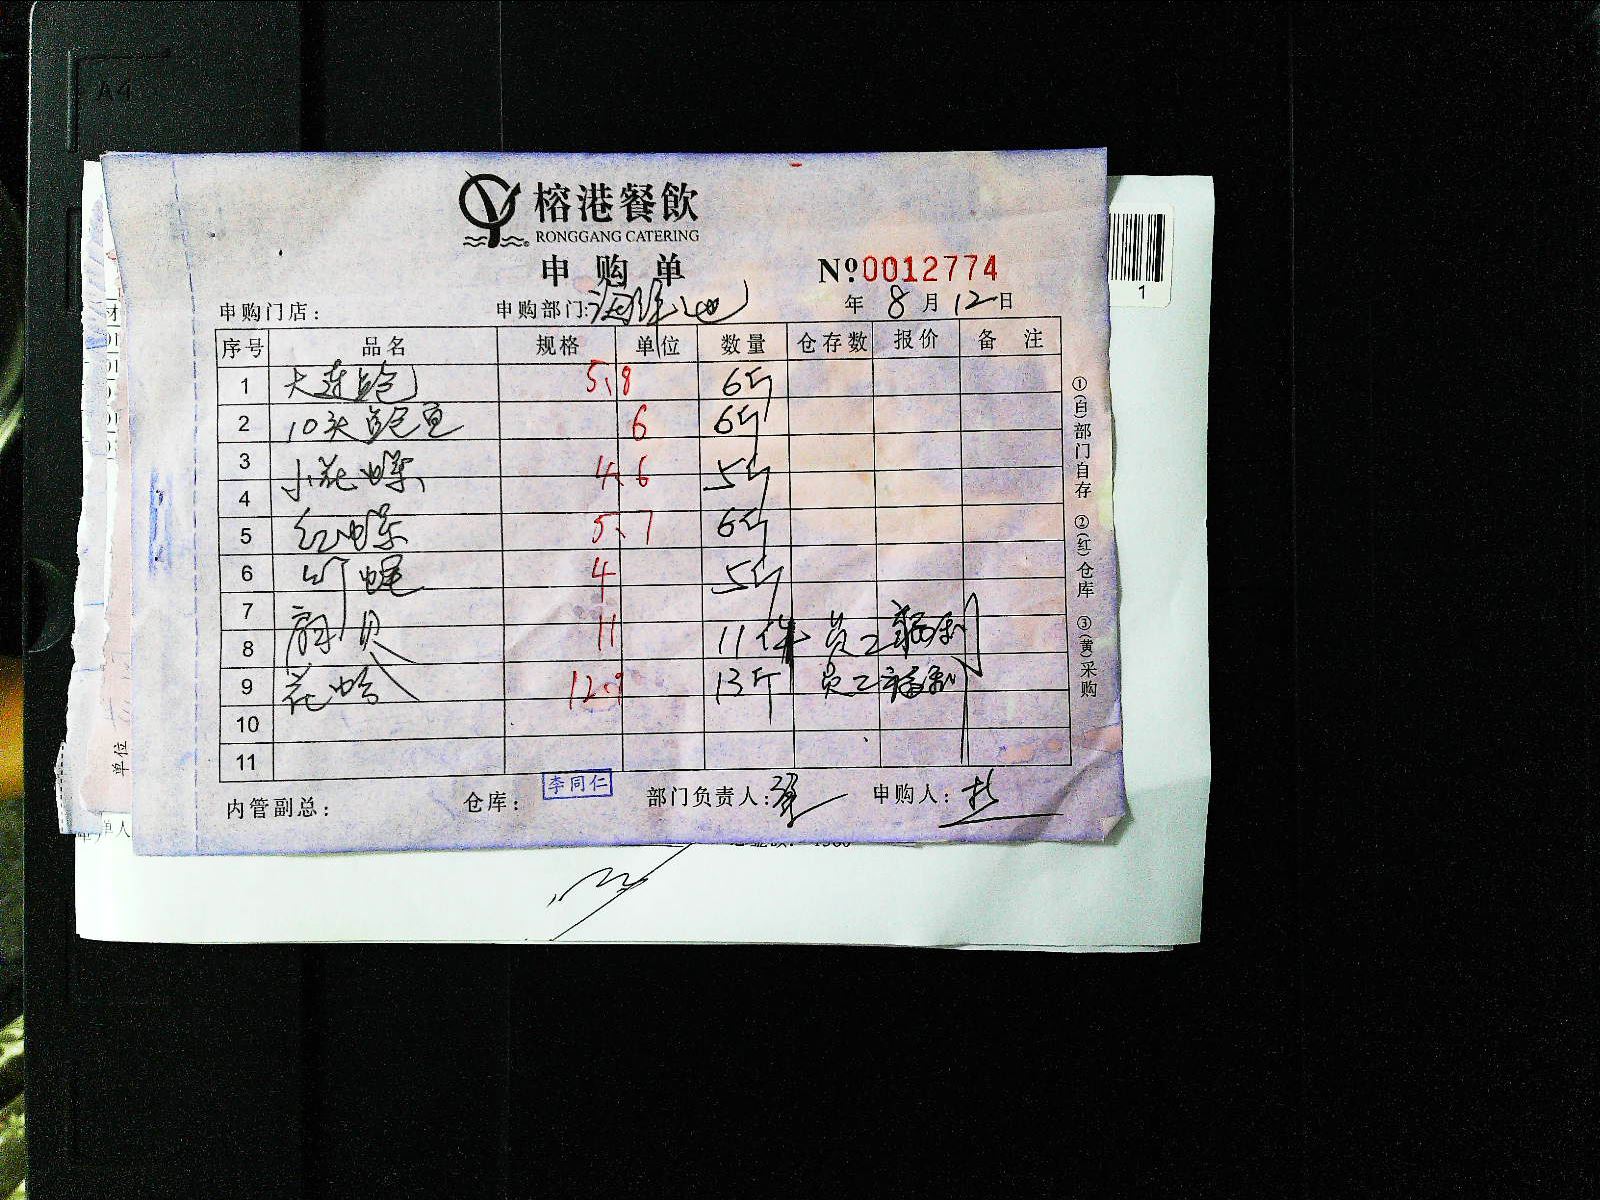 A4
榕港餐飲
RONGGANG CATERING
申购单
Nº0012774
1
申购门店：
申购部门：海鲜池
年 8 月 12 日
序号 品名 规格 单位 数量 仓存数 报价 备注
1 大连鲍 5、8 6斤
2 10头鲍鱼 6 6斤
3 小花螺 4、6 5斤
4
5 红螺 5、7 6斤
6 竹蛏 4 5斤
7
8 扇贝 11 11件 员工福利
9 花蛤 12 13斤 员工福利
10
11
①(白)部门自存 ②(红)仓库 ③(黄)采购
内管副总： 仓库： 李同仁 部门负责人： 申购人：
单位
单人